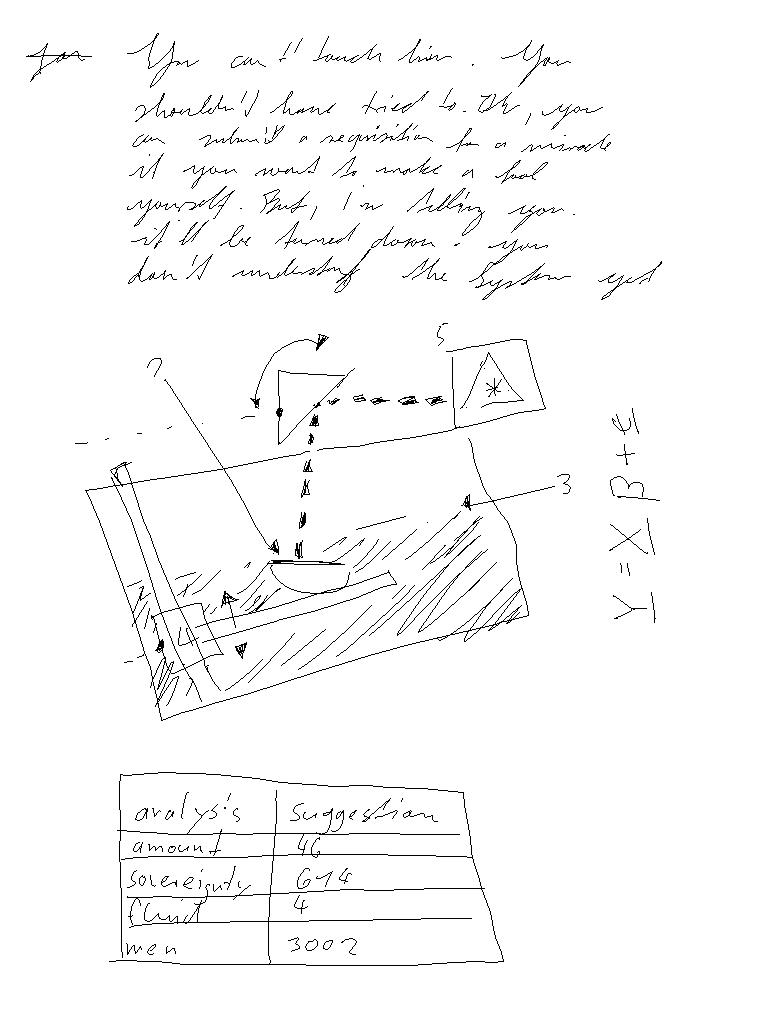 You can't touch him. You
shouldn't have tried to. Ok, you
can submit a requisition for a miracle
if you want to make a fool
yourself. But, I'm telling you.
it'll be turned down. you
don't understand the System yet
5
?
3
4
Y = X β + ε
analysis suggestion
amount 46
sovereignty 614
fluid 4
men 3002